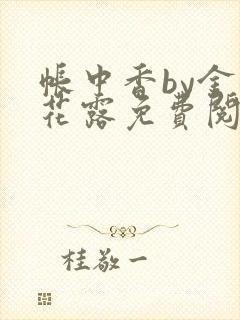 帐中香by金
花露免費閱
桂敬一